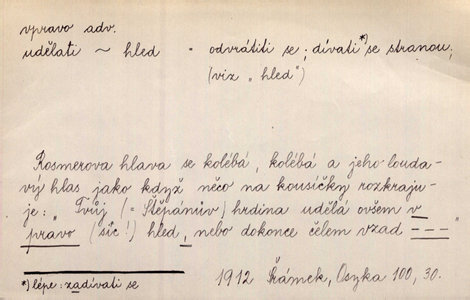 vpravo adv.
udělati ~ hled = odvrátiti se ; dívati *) se stranou ;
(viz „ hled")
Rosmerova hlava se kolébá, kolébá a jeho louda-
vý hlas jako když něco na kousíčky rozkraju-
je: „ Tvůj (= Štěpánův) hrdina udělá ovšem v
pravo (sic!) hled, nebo dokonce čelem vzad ---"
*) lépe: zadívati se
1912 Šrámek, Oszka 100, 30.